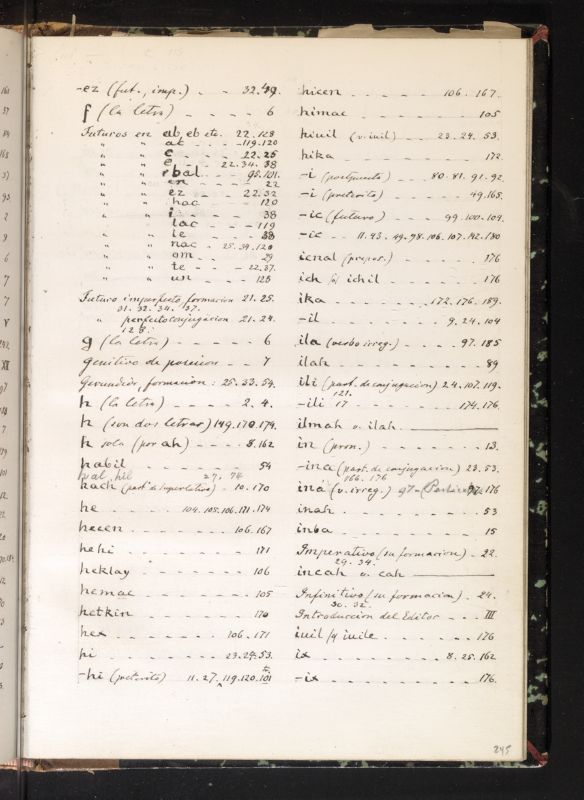 -ez (fut., imp.) - - 32.49.
f (la letra) - - - - - 6
Futuros en ab, eb etc. 22.128
" " at - - - - 119.120
" " c - - - - 22.25
" " e - - - 22.34.38
" " bal - - - - 95.101.
" " en - - - - 22
" " ez - - - - 22.32
" " hac - - - - 120
" " i - - - - 38
" " lac - - - - 119
" " le - - - - 38
" " nac - 25.39.120
" " om - - - - 29
" " te - - - - 22.37.
" " un - - - - 125
Futuro imperfecto formacion 21.25.
31. 32. 34. 37.
" perfecto conjugacion 21.24.
128.
g (la letra) - - - - - 6
genitivo de posesion - - 7
Gerundios, formacion: 25.33.54.
h (la letra) - - - - 2. 4.
h (con dos letras) 149.170.174.
h sola (por ah) - - - 8.162
habil - - - - - 54
hal, hil 27. 74
hach (part. de superlativo) - 10.170
he - - - - 104.105.106.171.174
hecen - - - - - 106.167
hehi - - - - - 171
heklay - - - - - 106
hemac - - - - - 105
hetkin - - - - - 170
hex - - - - - 106.171
hi - - - - - 23.24.53.
-hi (preterito) 11.27.119.120.101
hicen - - - - - 106. 167.
himac - - - - - 105
hiuil (v. iuil) - - - 23.24. 53.
hika - - - - - 172.
-i (pospuesto) - - - 80.81.91.92
-i (preterito) - - - - 49.165.
-ic (futuro) - - - - 99.100.104.
-ic - - 11.43.49.98.106.107.142.180
icnal (prepos.) - - - - 176
ich id ichil - - - - 176
ika - - - - - 172.176.189.
-il - - - - - 9.24.104
ila (verbo irreg.) - - - - 97.185
ilah - - - - - 89
ili (part. de conjugacion) 24.107.119.
121.
-ili 17 - - - - 174.176.
ilmah v. ilah.
in (pron.) - - - - - 13.
-ina (part. de conjugacion) 23.53.
166.176
ina (v. irreg.) 97 - 176
inah - - - - - 53
inba - - - - - 15
Imperativo (su formacion) - 22.
29. 34.
incah v. cah
Infinitivo (su formacion) - 24.
30. 32.
Introduccion del Editor - - - III
iuil id iuile - - - - 176
ix - - - - - 8.25.162
-ix - - - - - 176.
245